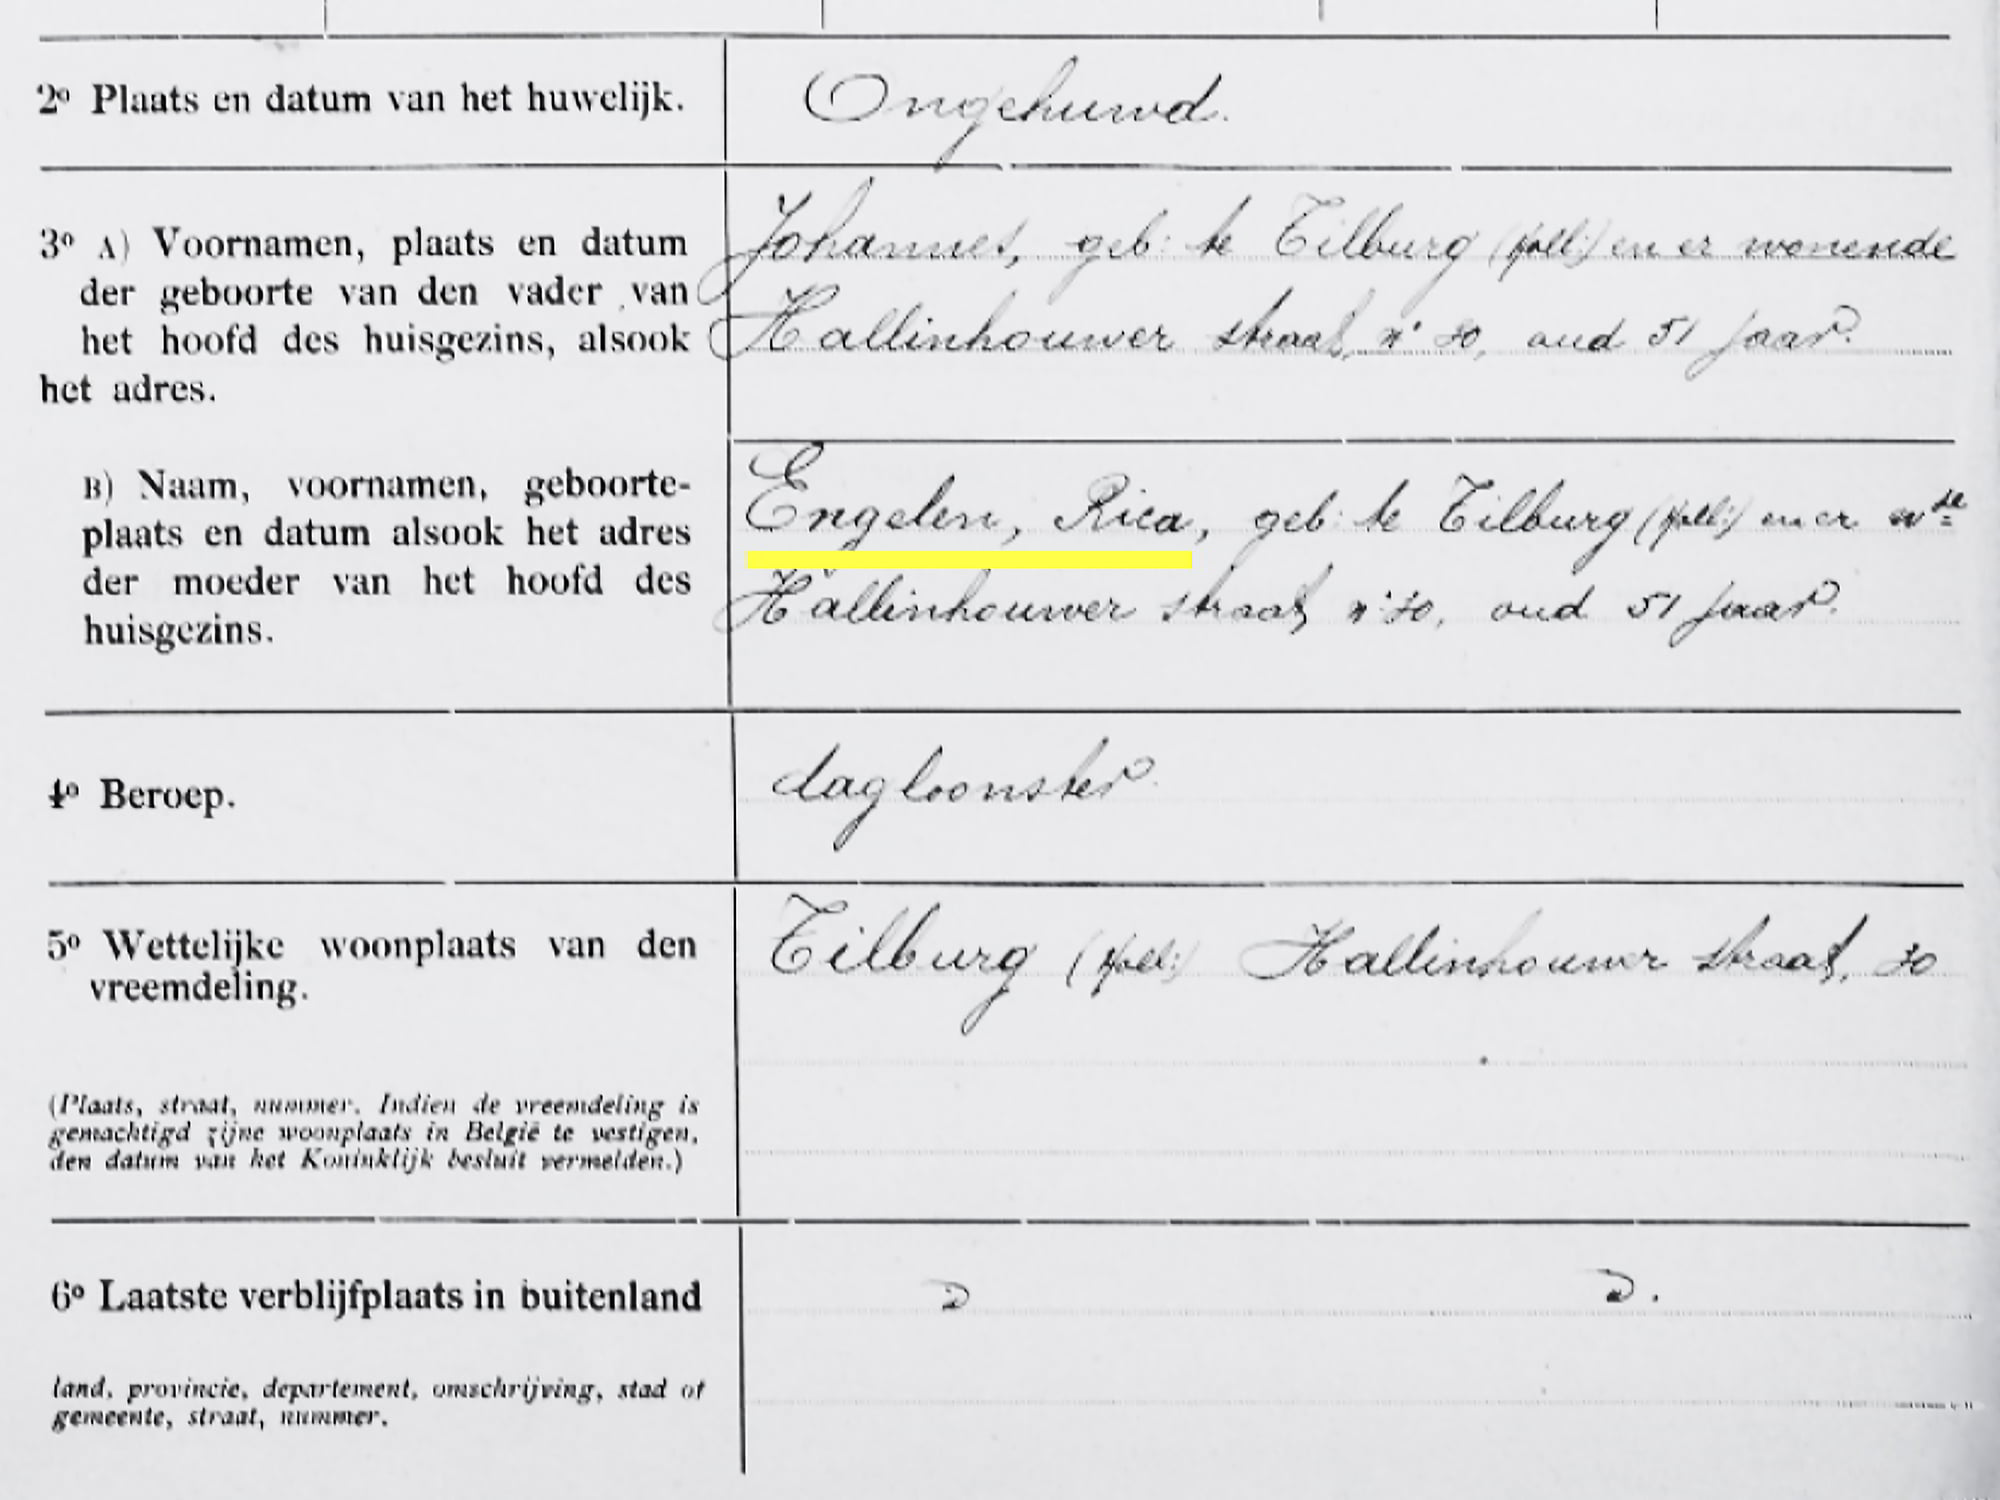 2º Plaats en datum van het huwelijk.
Ongehuwd.
3º A) Voornamen, plaats en datum
der geboorte van den vader van
het hoofd des huisgezins, alsook
het adres.
Johannes, geb: te Tilburg (Holl:) en er wonende
Hallinhouwer straat, nº 30, oud 51 jaar.
B) Naam, voornamen, geboorte-
plaats en datum alsook het adres
der moeder van het hoofd des
huisgezins.
Engelen, Rica, geb: te Tilburg (Holl:) en er wde
Hallinhouwer straat nº 30, oud 51 jaar.
4º Beroep.
dagloonster.
5º Wettelijke woonplaats van den
vreemdeling.
Tilburg (Holl:) Hallinhouwer straat, 30
(Plaats, straat, nummer. Indien de vreemdeling is
gemachtigd zijne woonplaats in België te vestigen,
den datum van het Koninklijk besluit vermelden.)
6º Laatste verblijfplaats in buitenland
land, provincie, departement, omschrijving, stad of
gemeente, straat, nummer.